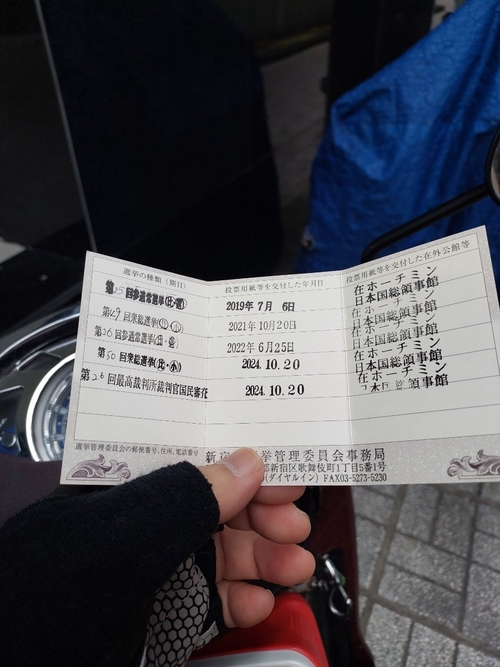 選挙の種類（期日） 投票用紙等を交付した年月日 投票用紙等を交付した在外公館等
第25回参通常選挙(比・選) 2019年7月 6日 在ホーチミン日本国総領事館
第49回衆総選挙(比・小) 2021年10月20日 在ホーチミン日本国総領事館
第26回参通常選挙(比・選) 2022年6月25日 在ホーチミン日本国総領事館
第50回衆総選挙(比・小) 2024.10.20 在ホーチミン日本国総領事館
第26回最高裁判所裁判官国民審査 2024.10.20 在ホーチミン日本国総領事館
選挙管理委員会の郵便番号、住所、電話番号 新宿 挙管理委員会事務局
都新宿区歌舞伎町1丁目5番1号
(ダイヤルイン) FAX03-5273-5230